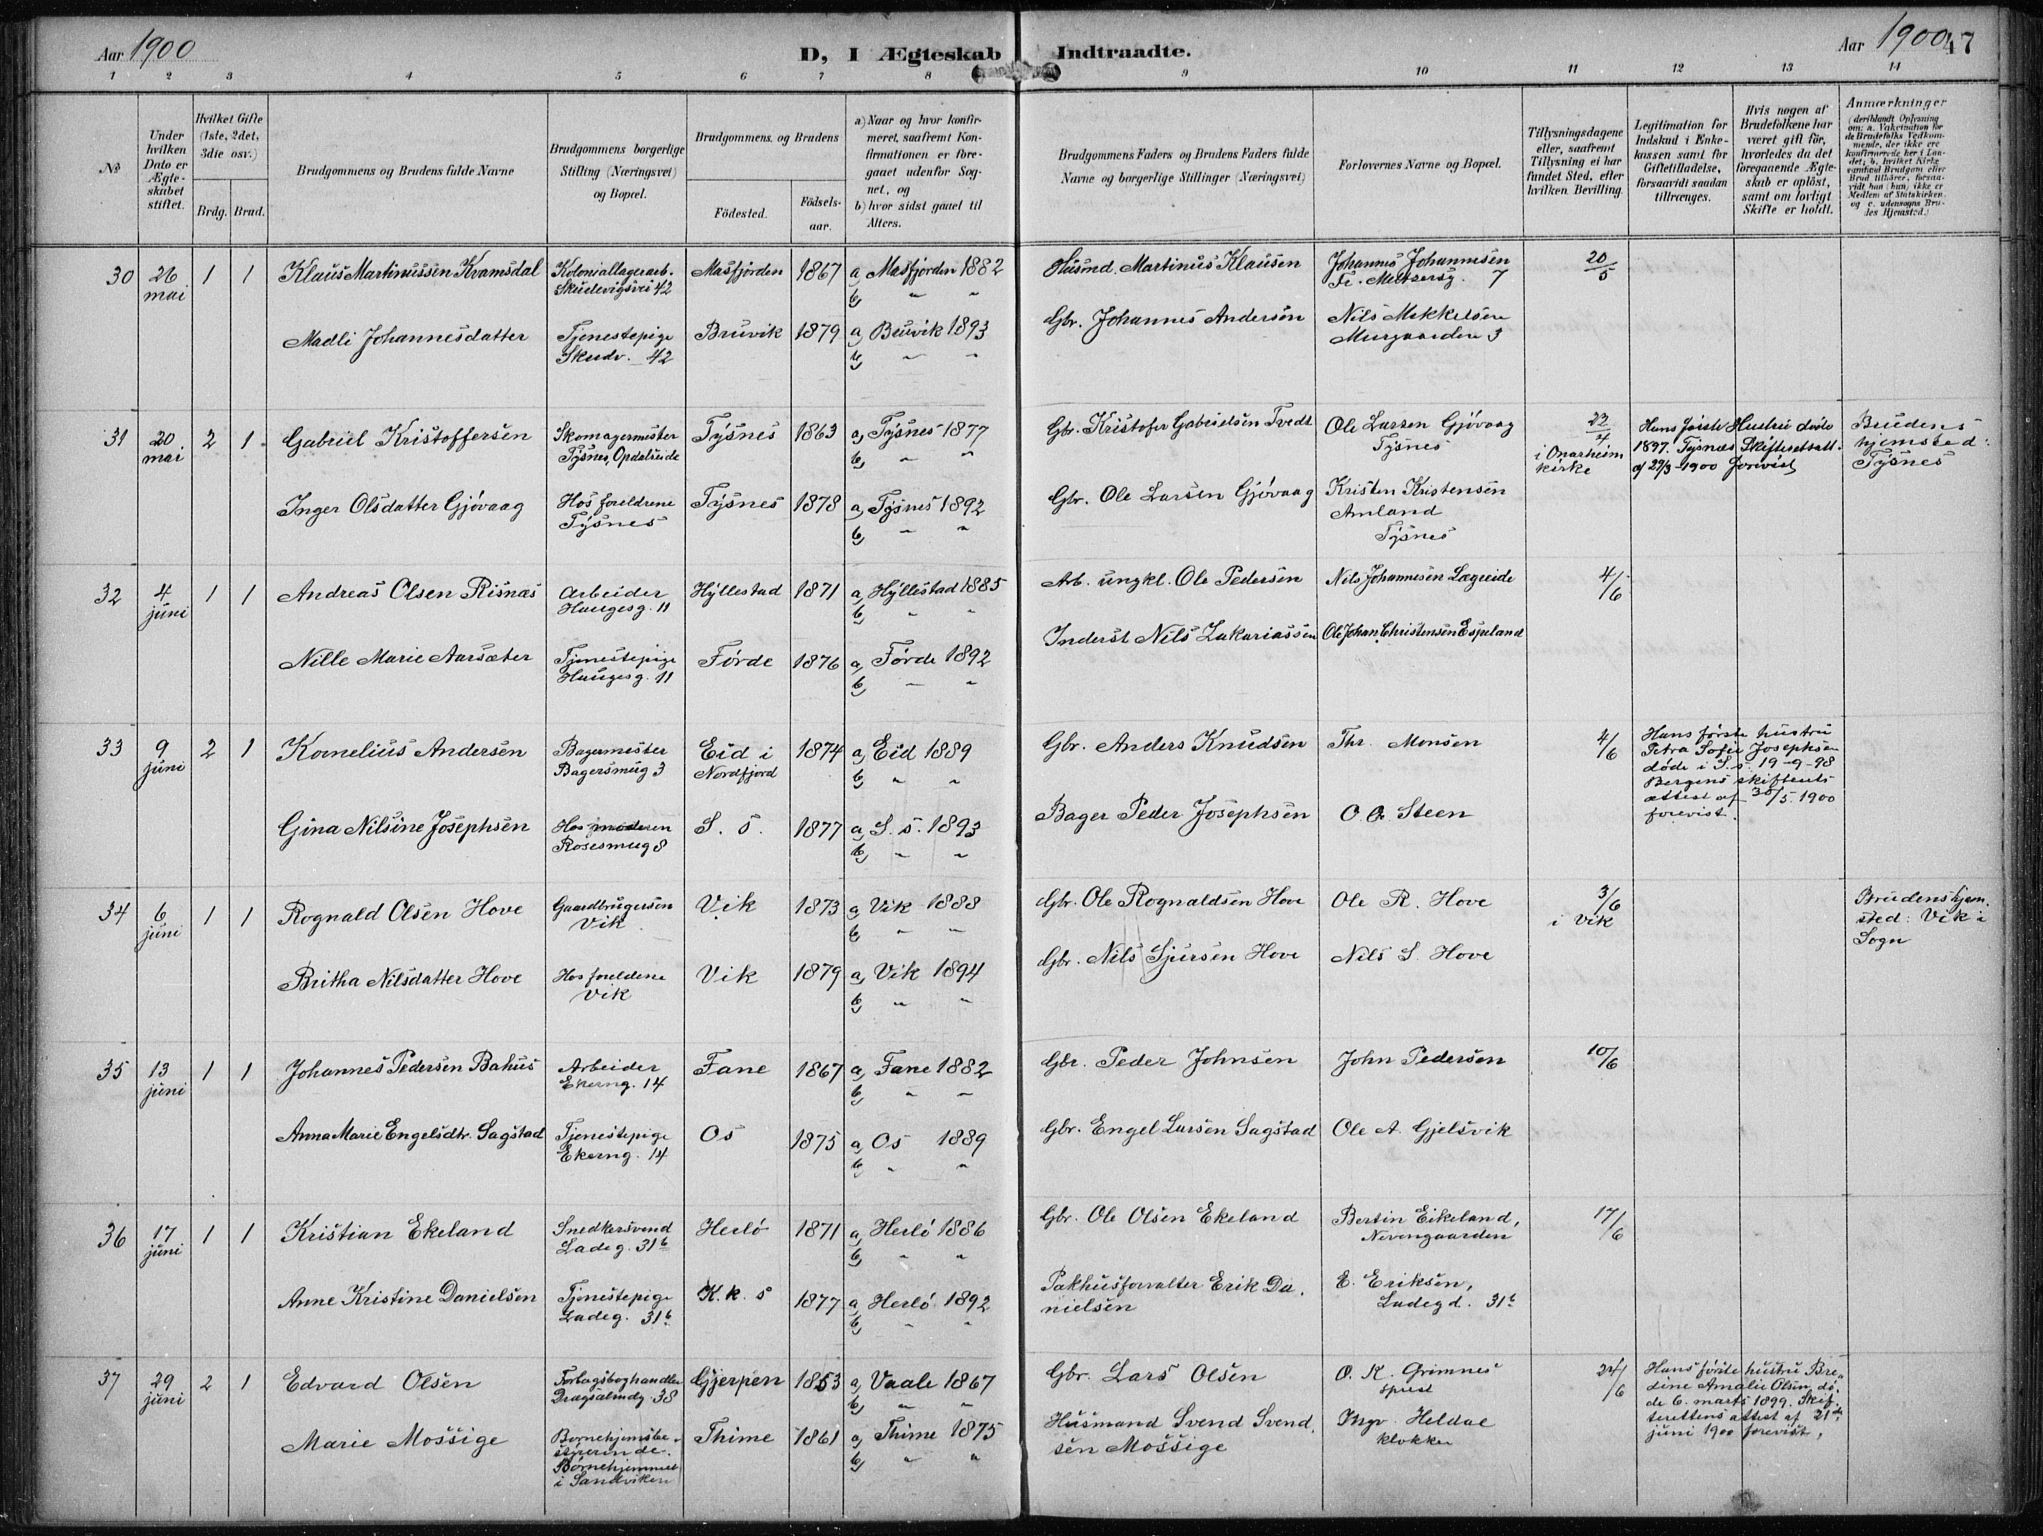 Aar 1900
D, I Ægteskab Indtraadte.
Aar 1900 47
1 2 3 4 5 6 7 8 9 10 11 12 13 14
No
Under hvilken Dato er Ægteskabet stiftet.
Hvilket Gifte (1ste, 2det, 3die osv.)
Brdg. Brud.
Brudgommens og Brudens fulde Navne
Brudgommens borgerlige Stilling (Næringsvei) og Bopæl.
Brudgommens og Brudens
Födested. Födselsaar.
a) Naar og hvor konfirmeret, saafremt Konfirmationen er foregaaet udenfor Sognet, og
b) hvor sidst gaaet til Alters.
Brudgommens Faders og Brudens Faders fulde Navne og borgerlige Stillinger (Næringsvei)
Forlovernes Navne og Bopæl.
Tillysningsdagene eller, saafremt Tillysning ei har fundet Sted, efter hvilken Bevilling.
Legitimation for Indskud i Enkekassen samt for Giftetilladelse, forsaavidt saadan tiltrænges.
Hvis nogen af Brudefolkene har været gift för, hvorledes da det foregaaende Ægteskab er oplöst, samt om lovligt Skifte er holdt.
Anmærkninger (deriblandt Oplysning om: a. Vakcination for de Brudefolks Vedkommende, der ikke ere konfirmerede her i Landet; b. hvilket Kirkesamfund Brudgom eller Brud tilhører, forsaavidt han (hun) ikke er Medlem af Statskirken, og c. udensogns Brudes Hjemsted.)
30 26 mai 1 1 Klaus Martinussen Kvamsdal Koloniallagerarb. Skudevigsvei 42 Masfjorden 1867 a, Masfjorden 1882 b, " " Husmd. Martinus Klausen Johannes Johannesen Fr. Meltzersg. 7 20/5
Madli Johannesdatter Tjenestepige Skudv. 42 Bruvik 1879 a, Bruvik 1893 b, " " Gbr. Johannes Andersen Nils Mikkelsen Murgaarden 3
31 20 mai 2 1 Gabriel Kristoffersen Skomagermester Tysnes, Opdalseide Tysnes 1863 a, Tysnes 1877 b, " " Gbr. Kristofer Gabrielsen Tvedt Ole Larsen Gjövaag Tysnes 22/4 i Onarheim kirke Hans förste Hustru döde 1897. Tysnæs Skifteretsatt. af 29/3-1900 forevist Brudens hjemsted: Tysnes
Inger Olsdatter Gjövaag Hos foreldrene Tysnes Tysnes 1878 a, Tysnes 1892 b, " " Gbr. Ole Larsen Gjövaag Kristen Kristensen Amland Tysnes
32 4 juni 1 1 Andreas Olsen Risnæs Arbeider Haugesg. 11 Hyllestad 1871 a, Hyllestad 1885 b, " " Arb. ungkl. Ole Pedersen Nils Johannesen Lægreide 4/6
Nille Marie Aarsæter Tjenestepige Haugesg. 11 Förde 1876 a, Förde 1892 b, " " Inderst Nils Zakariassen Ole Johan Christensen Espeland
33 9 juni 2 1 Kornelius Andersen Bagermester Bagersmug 3 Eid i Nordfjord 1874 a, Eid 1889 b, " " Gbr. Anders Knudsen Thr. Monsen 4/6 Hans förste hustru Petra Sofie Josephsen döde i S.s. 19-9-98 Bergens skifterets attest af 30/5 1900 forevist.
Gina Nilsine Josephsen Hos moderen Rosesmug 8 S. s. 1877 a, S. s. 1893 b, " " Bager Peder Josephsen O. O. Steen
34 6 juni 1 1 Rognald Olsen Hove Gaardbrugersön Vik Vik 1873 a, Vik 1888 b, " " Gbr. Ole Rognaldsen Hove Ole R. Hove 3/6 i Vik Brudens hjemsted: Vik i Sogn
Britha Nilsdatter Hove Hos foreldene Vik Vik 1879 a, Vik 1894 b, " " Gbr. Nils Sjursen Hove Nils S. Hove
35 13 juni 1 1 Johannes Pedersen Bahus Arbeider Ekerng. 14 Fane 1867 a, Fane 1882 b, " " Gbr. Peder Johnsen John Pedersen 10/6
Anna Marie Engelsdtr. Sagstad Tjenestepige Ekerng. 14 Os 1875 a, Os 1889 b, " " Gbr. Engel Larsen Sagstad Ole A. Gjelsvik
36 17 juni 1 1 Kristian Ekeland Snedkersvend Ladeg. 31b Herlö 1871 a, Herlö 1886 b, " " Gbr. Ole Olsen Ekeland Bertin Eikeland, Nevengaarden 17/6
Anne Kristine Danielsen Tjenestepige Ladeg. 31b K.k. s 1877 a, Herlö 1892 b, " " Pakhusforvalter Erik Danielsen E. Eriksen, Ladegd. 31b
37 29 juni 2 1 Edvard Olsen Forlagsboghandler Dragsalmdg. 38 Gjerpen 1853 a, Vaale 1867 b, " " Gbr. Lars Olsen O. K. Grimnes 24/6 Hans förste hustru Bredine Amalie Olsen döde 6. marts 1899. Skifterettens attest af 21de juni 1900 forevist.
Marie Mossige Bornehjemsbestyrerinde. Börnehjemmet i Sandviken Thime 1861 a, Thime 1875 b, " " Husmand Svend Svendsen Mossige Ingv. Heldal klokker